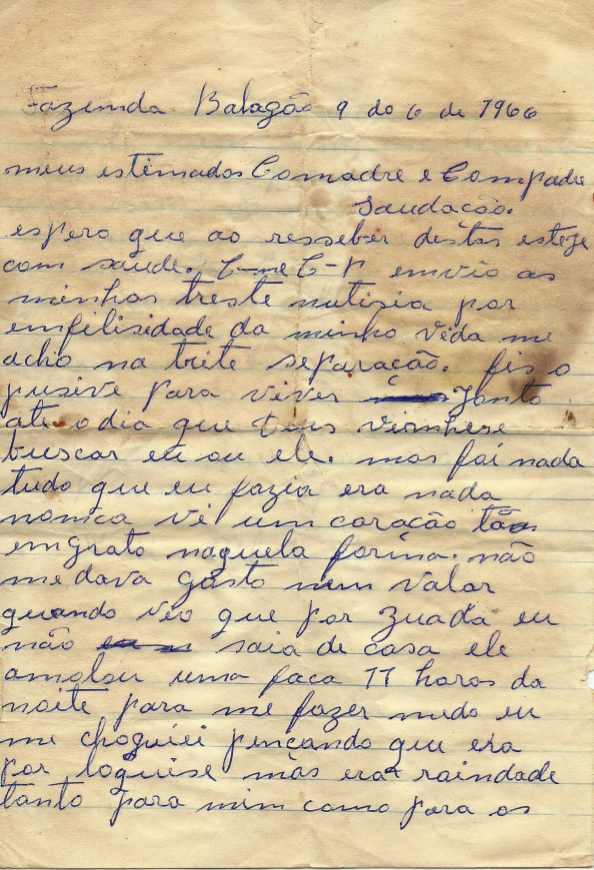 Fazenda Balagão 9 do 6 de 1966
meus estimados Comadre e Compadre
saudacão.
espero que ao resseber destas esteje
com saude. C-me C-P envio as
minhas treste nutisia por
emfilisidade da minha vida me
acho na trite separacão. fis o
pusive para viver junto
ate o dia que Deus viernhese
buscar eu ou ele. mas foi nada
tudo que eu fazia era nada
nonca vi um coracão tão
emgrato naquela forma. não
me dava gosto nem valor
quando veo que por zuada eu
não saia de casa ele
amolou uma faca 11 horas da
noite para me fazer medo eu
me choquiei pençando que era
por loquise mas era raindade
tanto para mim como para os